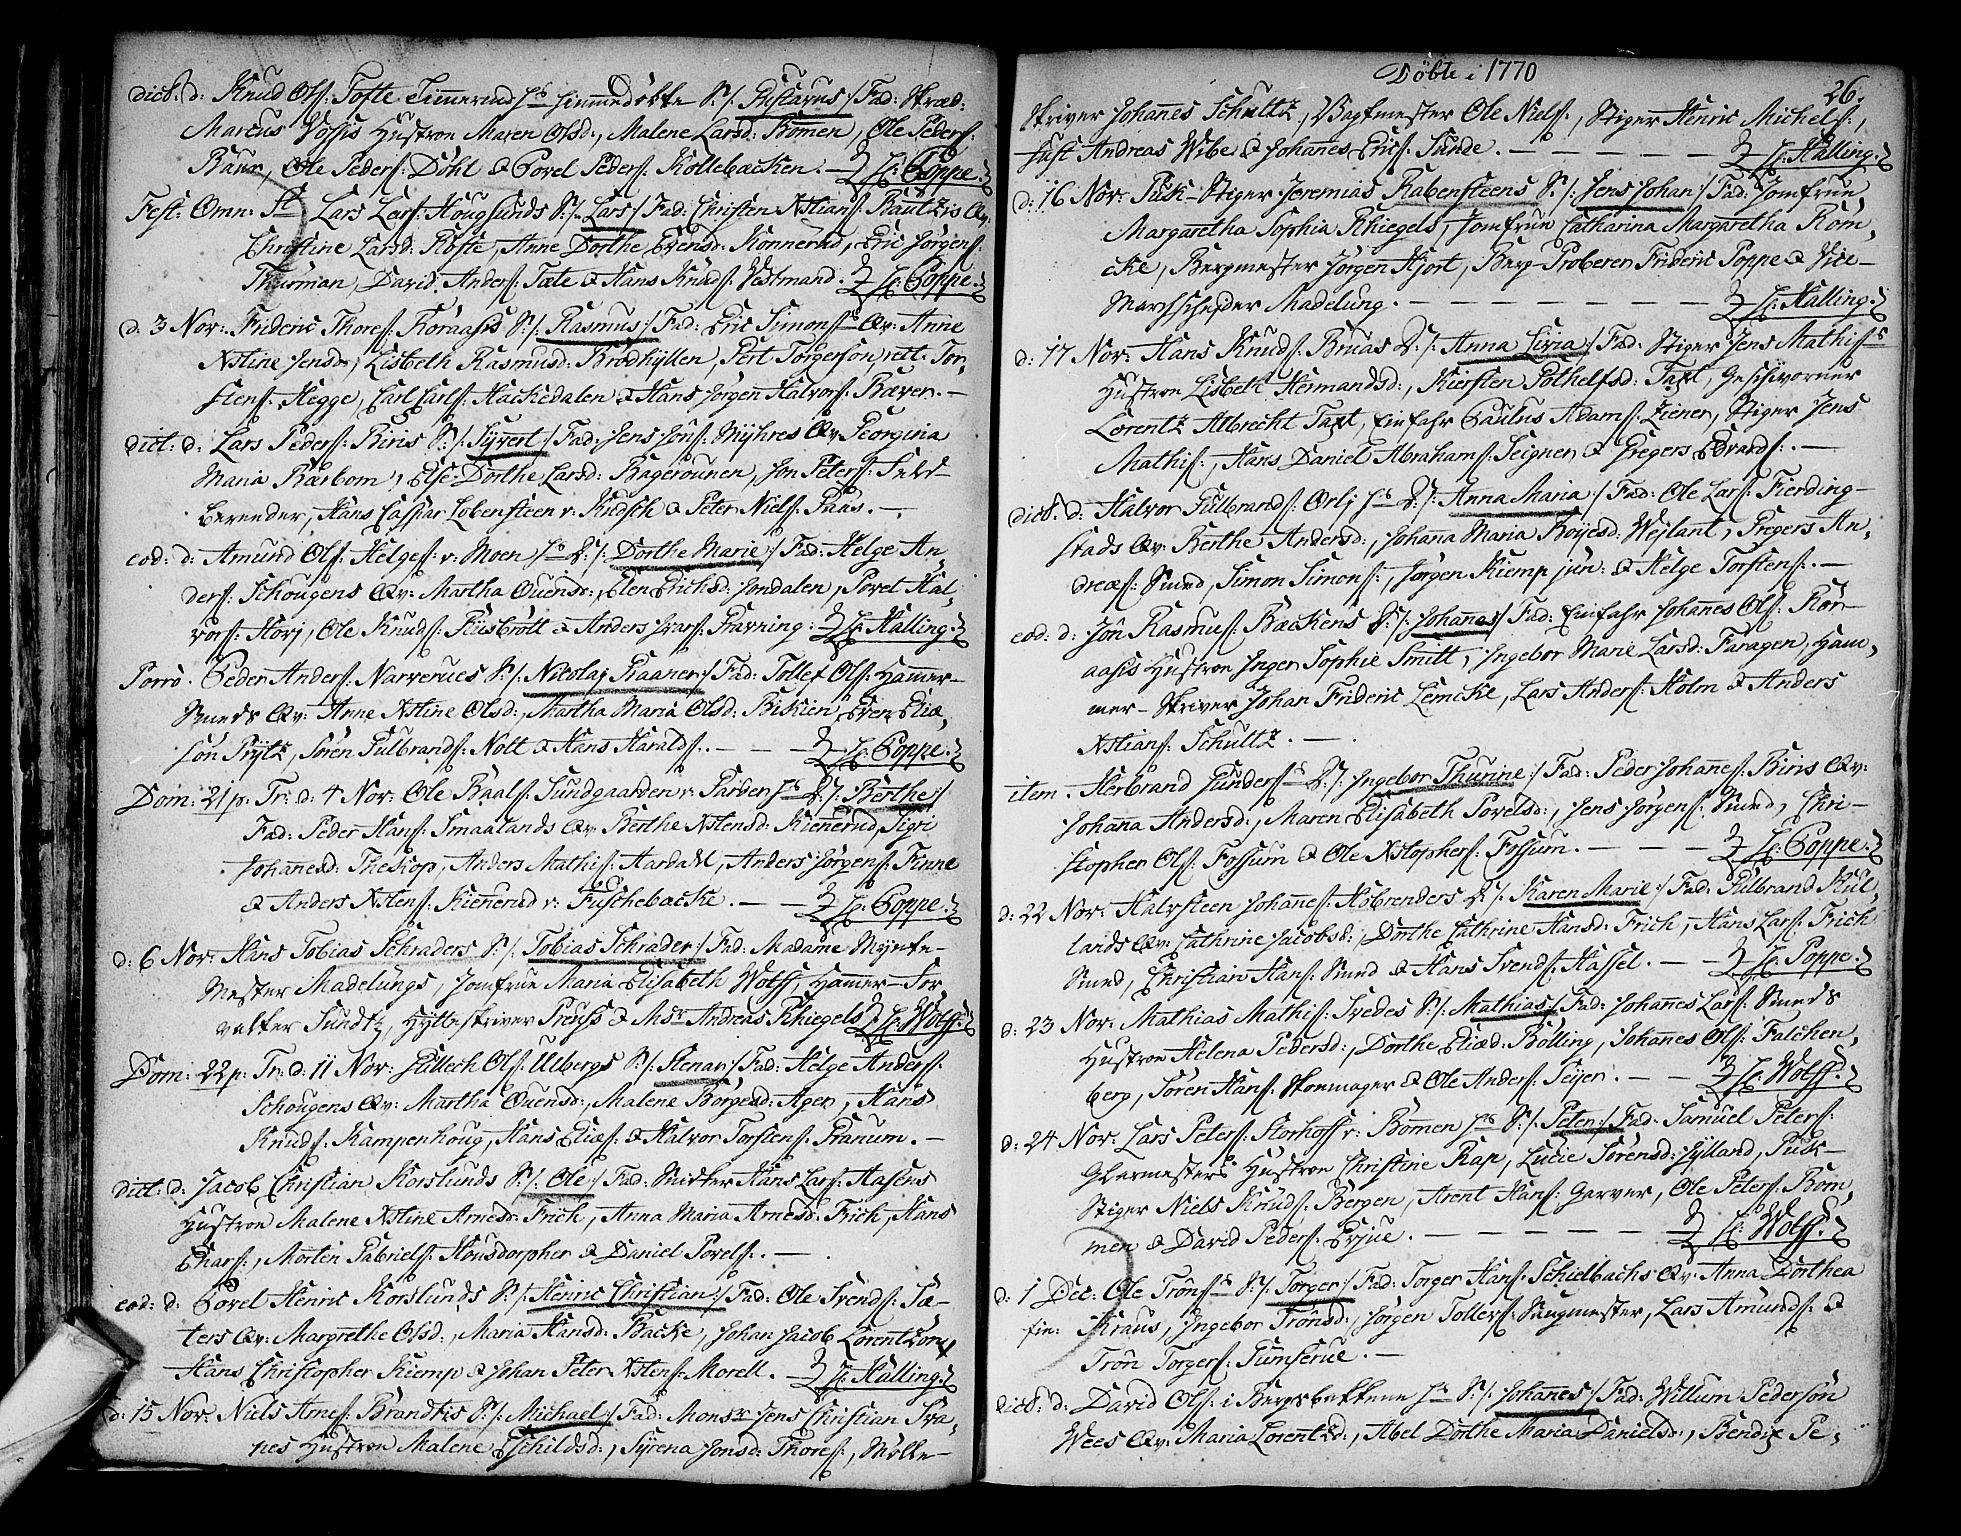 dict: d: Knud Ols: Tofte Timmermds hs hiemmedøbte S:/: Gustavus :/ Fad: Skræd:
Marcus Vossis Hustroe Maren Olsd:, Malene Larsd: Bømen, Ole Peders:
Baur, Ole Peders: Döhl & Povel Peders: Kollebacken. — H: Poppe.
Fest: Omn: St Lars Lars: Hougsunds S:/: Lars :/ Fad: Christen Xstians: Rautzis Qv:
Christine Larsd: Røste, Anne Dorthe Evensd: Konnerud, Eric Jørgens:
Thurman, David Anders: Tæte & Hans Knuds: Vestmand. H: Poppe.
d: 3 Nov: Frideric Thores: Koraasis S:/: Rasmus :/ Fad: Eric Simons Qv: Anne
Xstine Jensd:, Lisbeth Rasmusd: Brødhyllen, Pert Torgerson, rett. Tor-
stens: Hegge, Carl Carls: Hackedalen & Hans Jørgen Halvors: Bæver. —
dict: d: Lars Peders: Biris S:/: Syvert :/ Fad: Jens Jöns: Myhres Qv: Georgina
Maria Barbom, Else Dorthe Larsd: Bagerovnen, Jon Peters: Sølv-
berender, Hans Caspar Lobensteen v: Kudsk & Peter Niels: Paus. —
eod: d: Amund Ols: Helges: v: Moen hs D:/: Dorthe Marie :/ Fad: Helge An-
ders: Schougens Qv: Martha Ouensd:, Elen Erichsd: Jondalen, Povel Hal-
vors: Horj, Ole Knuds: Riisbrott & Anders Ivars: Pravning. H: Halling.
Porro. Peder Anders: Narverues S:/: Nicolaj Kaaner :/ Fad: Tollef Ols: Hamer-
Smeds Qv: Anne Xstine Olsd:, Martha Maria Olsd: Biskien, Even Eliæ-
sön Prytz, Sören Gulbrands: Nott & Hans Haralds. — — H: Poppe.
Dom: 21 p: Tr: d: 4 Nov: Ole Baals: Sundgaarden v: Garver hs D:/: Berthe :/
Fad: Peder Hans: Smaalands Qv: Berthe Xstensd: Kienerud, Sigri
Johannesd: Theskop, Anders Mathis: Aardahl, Anders Jørgens: Finne
& Anders Xstens: Kienerud v: Fuschebacke. — — H: Poppe.
d: 6 Nov: Hans Tobias Schraders S:/: Tobias Schrader :/ Fad: Madame Mynte-
Mester Madelungs, Jomfrue Maria Elisabeth Wolff, Hamer-For-
valter Sundtz, Hytteskriver Preuss & Msr Andreas Schiegels H: Wolff.
Dom: 22 p: Tr: d: 11 Nov: Gullech Ols: Ulbergs S:/: Stenar :/ Fad: Helge Anders:
Schougens Qv: Martha Ouensd:, Malene Börgesd: Ager, Hans
Knuds: Kampenhoug, Hans Eliæs: & Halvor Torstens: Pranum. —
dict: d: Jacob Christian Korslunds S:/: Ole :/ Fad: Snitker Hans Lars: Hasens
Hustroe Malene Xstine Arnesd: Frich, Anna Maria Arnesd: Frich, Hans
Ehars:, Morten Gabriels: Housdorpher & Daniel Povels. —
eod: d: Povel Henric Korslunds S:/: Henric Christian :/ Fad: Ole Svends: Sæ-
ters Qv: Margrethe Olsd:, Maria Hansd: Backe, Johan Jacob Lorentzon,
Hans Christopher Kiemp & Johan Peter Xstens: Morell. — H: Halling.
d: 15 Nov: Niels Arnes: Brandtis S:/: Michael :/ Fad: Monsr Jens Christian Tra-
nes Hustroe Malene Eschildsd:, Syrena Jonsd: Thores:, Mølle-
Döbte i 1770
26.
Skriver Johannes Schultz, Vagtmester Ole Niels:, Stiger Henric Michels:,
Gust Andreas Wibe & Johannes Erics: Sunde. — — — — H: Halling.
d: 16 Nov: Puk-Stiger Jeremias Rabensteens S:/: Jens Johan :/ Fad: Jomfrue
Margaretha Sophia Schiegels, Jomfrue Catharina Margaretha Rom-
cke, Bergmester Jörgen Hjort, Berg-Proberer Frideric Poppe & Vice-
Marchscheider Madelung. — — — — — H: Halling.
d: 17 Nov: Hans Knuds: Bruas D:/: Anna Livia :/ Fad: Stiger Jens Mathiss
Hustroe Lisbeth Hermandsd:, Kiersten Pothelfsd: Taxt, Geschworner
Lorentz Albrecht Taxt, Einfahr Paulus Adams: Ziener, Stiger Jens
Mathis:, Hans Daniel Abrahams: Seigner & Gregers Edvards:. —
dict: d: Halvor Gulbrands: Orlj hs D:/: Anna Maria :/ Fad: Ole Lars: Fierding-
stads Qv: Berthe Andersd:, Johana Maria Boyesd: Wejlant, Gregers An-
dreæs: Smed, Simon Simons:, Jørgen Kiemp jun: & Helge Torstens:. —
eod: d: Jön Rasmus: Backens S:/: Johanes :/ Fad: Einfahr Johanes Ols: Kor-
aasis Hustroe Inger Sophie Smitt, Ingebor Marie Larsd: Faragen, Ham-
mer-Skriver Johan Frideric Lemcke, Lars Anders: Holm & Anders
Xstians: Schultz. — .
item. Herbrand Gunders: D:/: Ingebor Thurine :/ Fad: Peder Johanes: Biris Qv:
Johana Andersd:, Maren Elisabeth Povelsd:, Jens Jørgens: Smed, Chri-
stopher Ols: Fossum & Ole Xstophers: Fossum. — — — H: Poppe.
d: 22 Nov: Halvsteen Johanes: Höbrenders D:/: Karen Marie :/ Fad: Gulbrand Kul-
lands Qv: Cathrine Jacobsd:, Dorthe Cathrine Hansd: Frich, Hans Lars: Frich
Smed, Christian Hans: Smed & Hans Svends: Hassel. — — H: Poppe.
d: 23 Nov: Mathias Mathis: Svedes S:/: Mathias :/ Fad: Johanes Lars: Smeds
Hustroe Helena Pedersd:, Dorthe Eliæd: Bölling, Johanes Ols: Falchen-
berg, Sören Hans: Skomager & Ole Anders: Sejer. — — H: Wolff.
d: 24 Nov: Lars Peters: Storhoff v: Bömen hs S:/: Peter :/ Fad: Samuel Peters:
Glarmesters Hustroe Christine Rap, Lucie Sörensd: Jylland, Puck-
Stiger Niels Knuds: Bergen, Arent Hans: Garver, Ole Peters: Bom-
men & David Peders: Erjue. — — — — H: Wolff.
d: 1 Dec: Ole Tröns S:/: Torger :/ Fad: Torger Hans: Schielbachs Qv: Anna Dorthea
fin: Kraus, Ingebor Trönsd:, Jørgen Tollefs: Saugmester, Lars Amunds: &
Trön Torgers: Tumserue. —
dict: d: David Ols: i Bergsbakkene hs S:/: Johanes :/ Fad: Willum Pedersön
Wees Qv: Maria Lorentsd:, Abel Dorthe Maria Danielsd:, Bendix Pe-